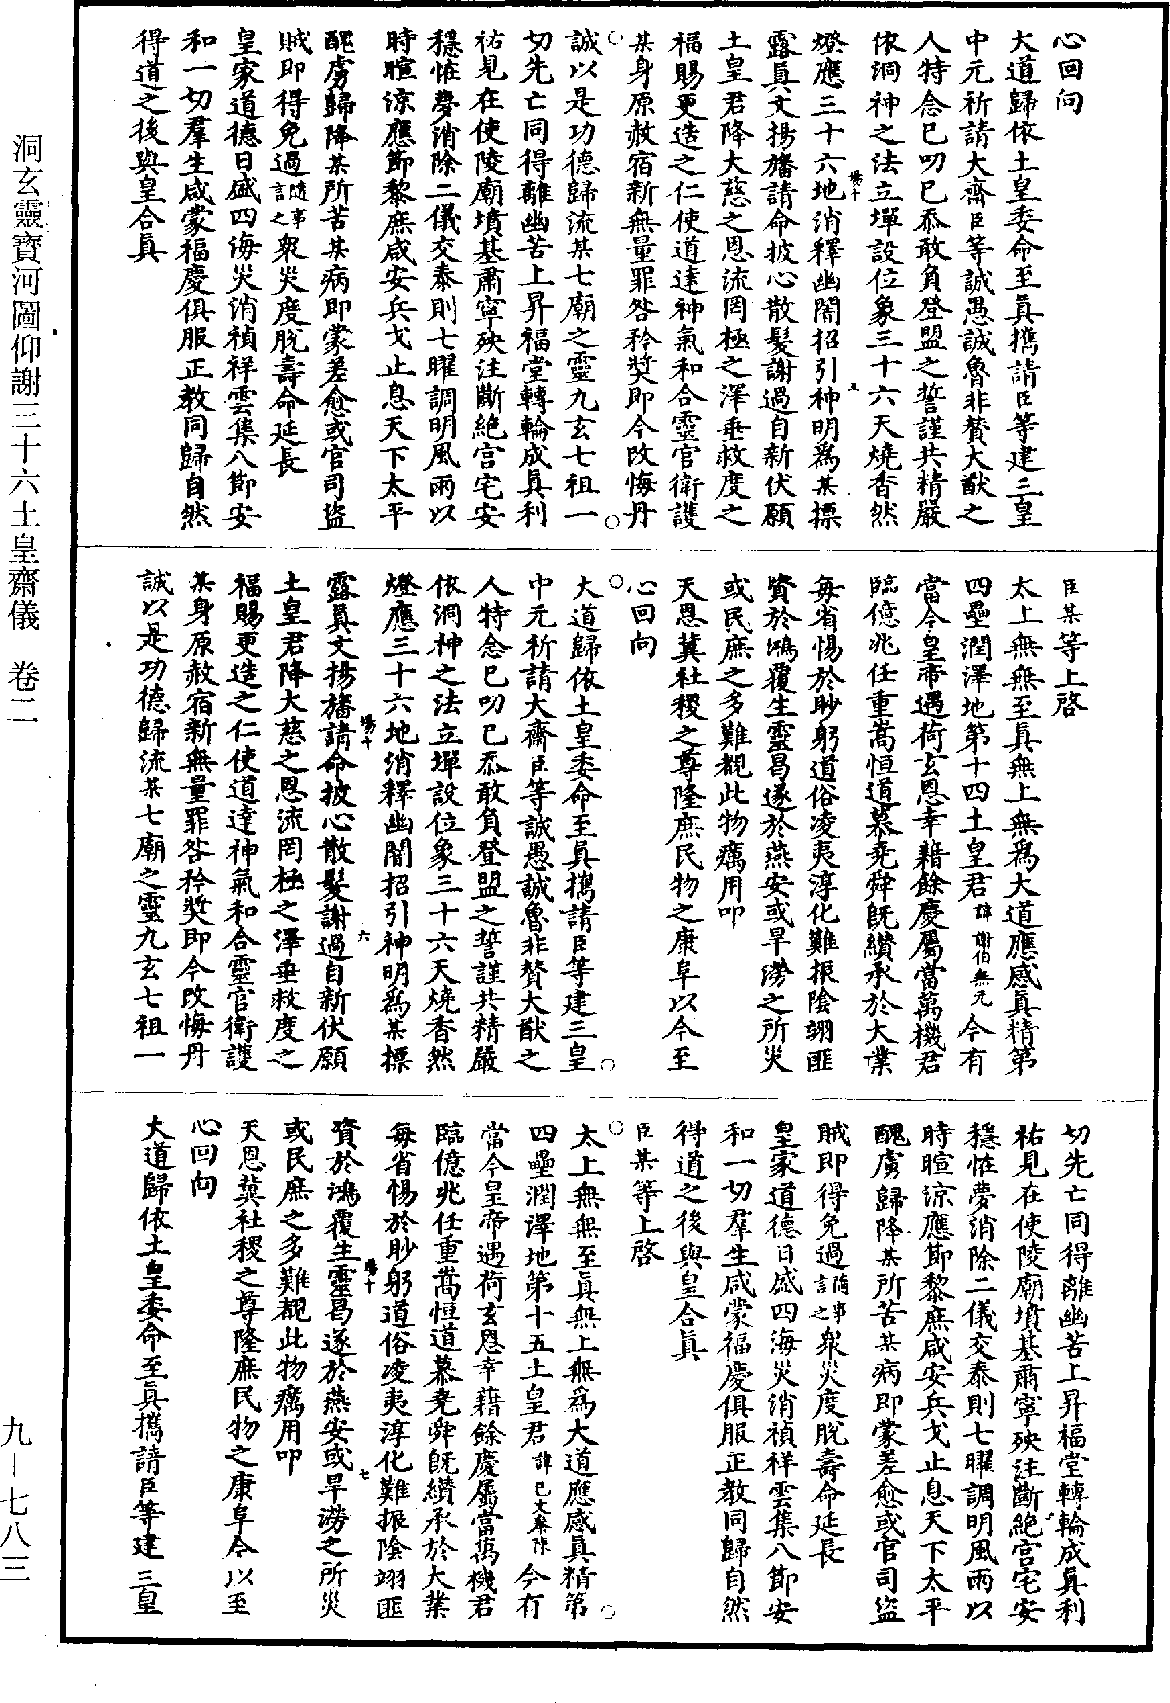 心回向
大道歸依土皇委命至真攜請臣等建三皇
中元祈請大齋臣等誠愚誠魯非贊大猷之
人特念已叨已忝敢負登盟之誓謹共精嚴
依洞神之法立墠設位象三十六天燒香然
燈應三十六地消釋幽闇招引神明爲某摽
露真文揚旛請命披心散髮謝過自新伏願
土皇君降大慈之恩流罔極之澤垂救度之
福賜更造之仁使道達神氣和合靈官衛護
某身原赦宿新無量罪咎矜獎即今改悔丹
誠以是功德歸流某七廟之靈九玄七祖一
切先亡同得離幽苦上昇福堂轉輪成真利
祐見在使陵廟墳基肅寧殃注斷絕宫宅安
穩恠夢消除二儀交泰則七曜調明風雨以
時暄涼應節黎庶咸安兵戈止息天下太平
醜虜歸降某所苦某病即蒙差愈或官司盜
賊即得免過隨事言之衆災度脫壽命延長
皇家道德日盛四海災消禎祥雲集八節安
和一切羣生咸蒙福慶俱服正教同歸自然
得道之後與皇合真
臣某等上啓
太上無無至真無上無爲大道應感真精第
四壘潤澤地第十四土皇君諱謝伯無元今有
當今皇帝遇荷玄恩幸藉餘慶屬當萬機君
臨億兆任重嵩恒道慕堯舜旣纘承於大業
每省惕於眇躬道俗凌夷淳化難振陰翊匪
資於鴻覆生靈曷遂於燕安或旱澇之所災
或民庶之多難覩此物癘用叩
天恩冀社稷之尊隆庶民物之康阜以今至
心回向
大道歸依土皇委命至真攜請臣等建三皇
中元祈請大齋臣等誠愚誠魯非贊大猷之
人特念已叨已忝敢負登盟之誓謹共精嚴
依洞神之法立墠設位象三十六天燒香然
燈應三十六地消釋幽闇招引神明爲某摽
露真文揚旛請命披心散髮謝過自新伏願
土皇君降大慈之恩流罔極之澤垂救度之
福賜更造之仁使道達神氣和合靈官衛護
某身原赦宿新無量罪咎矜獎即今改悔丹
誠以是功德歸流某七廟之靈九玄七祖一
切先亡同得離幽苦上昇福堂轉輪成真利
祐見在使陵廟墳基肅寧殃注斷絕宫宅安
穩恠夢消除二儀交泰則七曜調明風雨以
時暄涼應節黎庶咸安兵戈止息天下太平
醜虜歸降某所苦某病即蒙差愈或官司盜
賊即得免過隨事言之衆災度脫壽命延長
皇家道德日盛四海災消禎祥雲集八節安
和一切羣生咸蒙福慶俱服正教同歸自然
得道之後與皇合真
臣某等上啓
太上無無至真無上無爲大道應感真精第
四壘潤澤地第十五土皇君諱已文秦陳今有
當今皇帝遇荷玄恩幸藉餘慶屬當萬機君
臨億兆任重嵩恒道慕堯舜旣纘承於大業
每省惕於眇躬道俗凌夷淳化難振陰翊匪
資於鴻覆生靈曷遂於燕安或旱澇之所災
或民庶之多難覩此物癘用叩
天恩冀社稷之尊隆庶民物之康阜今以至
心回向
大道歸依土皇委命至真攜請臣等建三皇
洞玄靈寶河圖仰謝三十六土皇齋儀 卷二
九—七八三